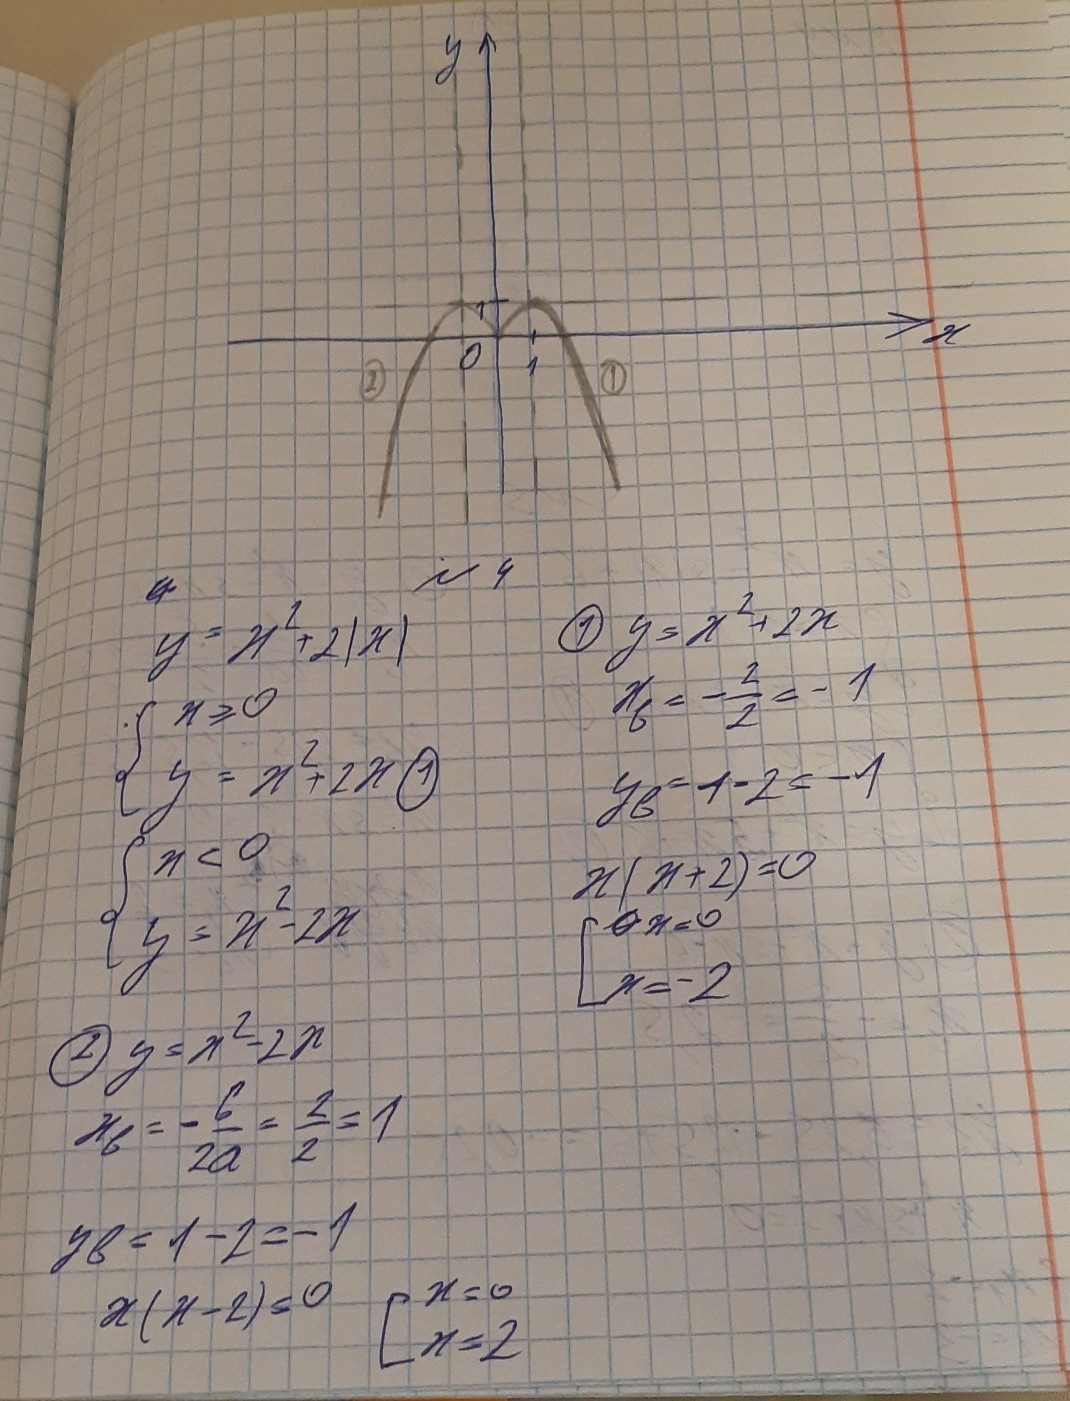 y
1
x
0
1
②
①
№ 4
y = x² + 2|x|
{ x ≥ 0
y = x² + 2x ①
{ x < 0
y = x² - 2x
① y = x² + 2x
xв = - 2/2 = - 1
yв = 1 - 2 = - 1
x(x + 2) = 0
[ x = 0
x = - 2
② y = x² - 2x
xв = - б/2a = 2/2 = 1
yв = 1 - 2 = - 1
x(x - 2) = 0
[ x = 0
x = 2